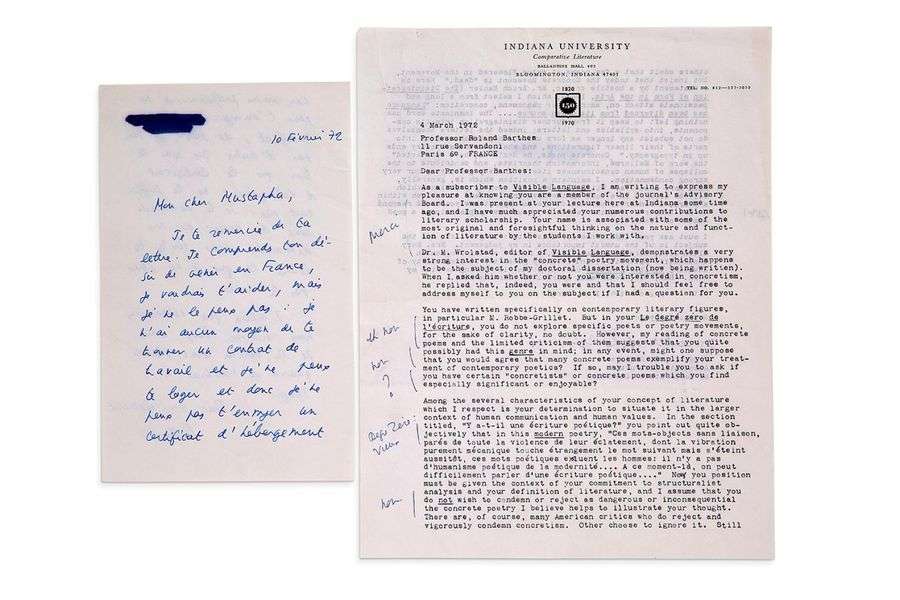 10 Février 72
Mon cher Mustapha,
Je te remercie de ta
lettre. Je comprends ton dé-
sir de venir en France,
je voudrais t'aider, mais
je ne le peux pas : je
n'ai aucun moyen de te
trouver un contrat de
travail et je ne peux
te loger et donc je ne
peux pas t'envoyer un
certificat d'hébergement
INDIANA UNIVERSITY
Comparative Literature
BALLANTINE HALL 402
BLOOMINGTON, INDIANA 47401
TEL. NO. 812—337-7070
1820
150
1970
4 March 1972
Professor Roland Barthes
11 rue Servandoni
Paris 6e, FRANCE
Dear Professor Barthes:
As a subscriber to Visible Language, I am writing to express my
pleasure at knowing you are a member of the journal's Advisory
Board. I was present at your lecture here at Indiana some time
ago, and I have much appreciated your numerous contributions to
literary scholarship. Your name is associated with some of the
most original and foresightful thinking on the nature and funct-
ion of literature by the students I work with.
merci
Dr. M. Wrolstad, editor of Visible Language, demonstrates a very
strong interest in the "concrete" poetry movement, which happens
to be the subject of my doctoral dissertation (now being written).
When I asked him whether or not you were interested in concretism,
he replied that, indeed, you were and that I should feel free to
address myself to you on the subject if I had a question for you.
You have written specifically on contemporary literary figures,
in particular M. Robbe-Grillet. But in your Le degré zéro de
l'écriture, you do not explore specific poets or poetry movements,
for the sake of clarity, no doubt. However, my reading of concrete
poems and the limited criticism of them suggests that you quite
possibly had this genre in mind; in any event, might one suppose
that you would agree that many concrete poems exemplify your treat-
ment of contemporary poetics? If so, may I trouble you to ask if
you have certain "concretists" or concrete poems which you find
especially significant or enjoyable?
eh non
non
?
Among the several characteristics of your concept of literature
which I respect is your determination to situate it in the larger
context of human communication and human values. In the section
titled, "Y a-t-il une écriture poétique?" you point out quite ob-
jectively that in this modern poetry, "Ces mots-objects sans liaison,
parés de toute la violence de leur éclatement, dont la vibration
purement mécanique touche étrangement le mot suivant mais s'éteint
aussitôt, ces mots poétiques excluent les hommes: il n'y a pas
d'humanisme poétique de la modernité.... A ce moment-là, on peut
difficilement parler d'une écriture poétique...." Now your position
must be given the context of your commitment to structuralist
analysis and your definition of literature, and I assume that you
do not wish to condemn or reject as dangerous or inconsequential
the concrete poetry I believe helps to illustrate your thought.
There are, of course, many American critics who do reject and
vigorously condemn concretism. Other choose to ignore it. Still
Degré Zéro
vieux
non